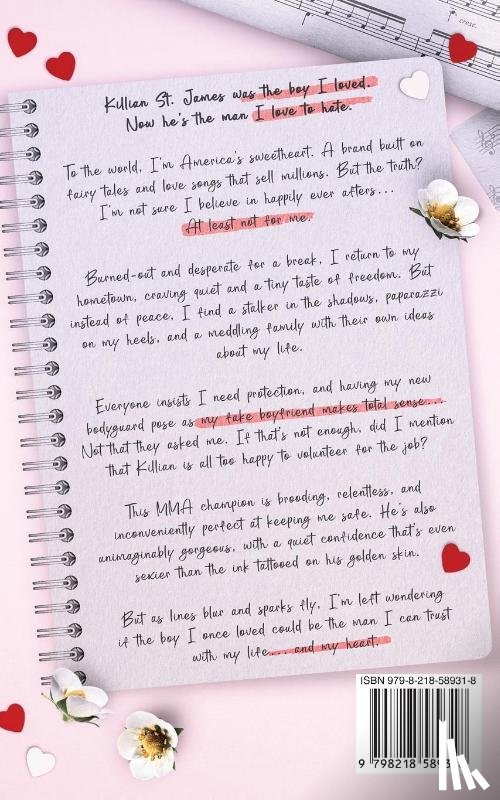 cresc.
Killian St. James was the boy I loved.
Now he's the man I love to hate.
To the world, I'm America's sweetheart. A brand built on
fairy tales and love songs that sell millions. But the truth?
I'm not sure I believe in happily ever afters...
At least not for me.
Burned-out and desperate for a break, I return to my
hometown, craving quiet and a tiny taste of freedom. But
instead of peace, I find a stalker in the shadows, paparazzi
on my heels, and a meddling family with their own ideas
about my life.
Everyone insists I need protection, and having my new
bodyguard pose as my fake boyfriend makes total sense...
Not that they asked me. If that's not enough, did I mention
that Killian is all too happy to volunteer for the job?
This MMA champion is brooding, relentless, and
inconveniently perfect at keeping me safe. He's also
unimaginably gorgeous, with a quiet confidence that's even
sexier than the ink tattooed on his golden skin.
But as lines blur and sparks fly, I'm left wondering
if the boy I once loved could be the man I can trust
with my life.... and my heart.
ISBN 979-8-218-58931-8
9 798218 589